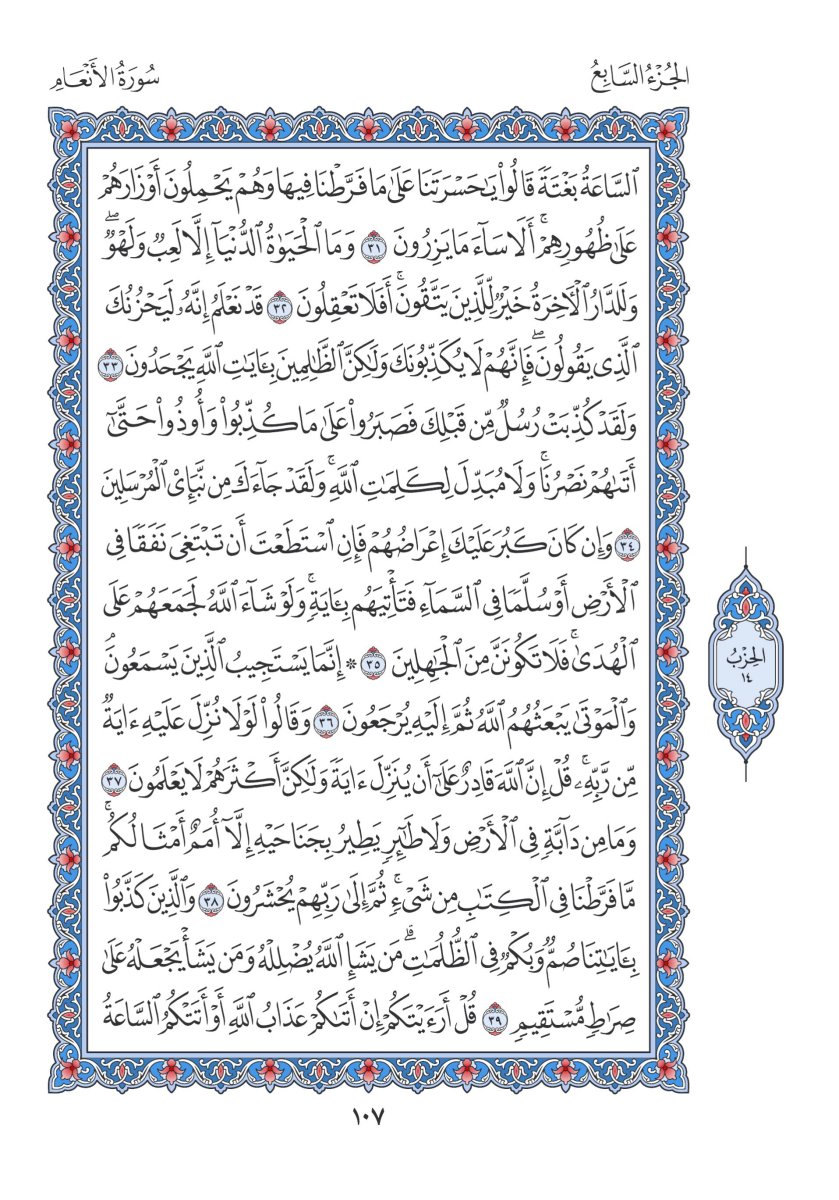 الجُزْءُ السَّابِعُ
سُورَةُ الأَنْعَامِ
ٱلسَّاعَةُ بَغْتَةً قَالُواْ يَٰحَسْرَتَنَا عَلَىٰ مَا فَرَّطْنَا فِيهَا وَهُمْ يَحْمِلُونَ أَوْزَارَهُمْ
عَلَىٰ ظُهُورِهِمْۚ أَلَا سَآءَ مَا يَزِرُونَ ٣١ وَمَا ٱلْحَيَوٰةُ ٱلدُّنْيَآ إِلَّا لَعِبٌ وَلَهْوٌۖ
وَلَلدَّارُ ٱلْأٓخِرَةُ خَيْرٌ لِّلَّذِينَ يَتَّقُونَۚ أَفَلَا تَعْقِلُونَ ٣٢ قَدْ نَعْلَمُ إِنَّهُۥ لَيَحْزُنُكَ
ٱلَّذِى يَقُولُونَۖ فَإِنَّهُمْ لَا يُكَذِّبُونَكَ وَلَٰكِنَّ ٱلظَّٰلِمِينَ بِـَٔايَٰتِ ٱللَّهِ يَجْحَدُونَ ٣٣
وَلَقَدْ كُذِّبَتْ رُسُلٌ مِّن قَبْلِكَ فَصَبَرُواْ عَلَىٰ مَا كُذِّبُواْ وَأُوذُواْ حَتَّىٰٓ
أَتَىٰهُمْ نَصْرُنَاۚ وَلَا مُبَدِّلَ لِكَلِمَٰتِ ٱللَّهِۚ وَلَقَدْ جَآءَكَ مِن نَّبَإِىْ ٱلْمُرْسَلِينَ
٣٤ وَإِن كَانَ كَبُرَ عَلَيْكَ إِعْرَاضُهُمْ فَإِنِ ٱسْتَطَعْتَ أَن تَبْتَغِىَ نَفَقًا فِى
ٱلْأَرْضِ أَوْ سُلَّمًا فِى ٱلسَّمَآءِ فَتَأْتِيَهُم بِـَٔايَةٍۚ وَلَوْ شَآءَ ٱللَّهُ لَجَمَعَهُمْ عَلَى
ٱلْهُدَىٰۚ فَلَا تَكُونَنَّ مِنَ ٱلْجَٰهِلِينَ ٣٥ ۞ إِنَّمَا يَسْتَجِيبُ ٱلَّذِينَ يَسْمَعُونَۘ
وَٱلْمَوْتَىٰ يَبْعَثُهُمُ ٱللَّهُ ثُمَّ إِلَيْهِ يُرْجَعُونَ ٣٦ وَقَالُواْ لَوْلَا نُزِّلَ عَلَيْهِ ءَايَةٌ
مِّن رَّبِّهِۦۚ قُلْ إِنَّ ٱللَّهَ قَادِرٌ عَلَىٰٓ أَن يُنَزِّلَ ءَايَةً وَلَٰكِنَّ أَكْثَرَهُمْ لَا يَعْلَمُونَ ٣٧
وَمَا مِن دَآبَّةٍ فِى ٱلْأَرْضِ وَلَا طَٰٓئِرٍ يَطِيرُ بِجَنَاحَيْهِ إِلَّآ أُمَمٌ أَمْثَالُكُمۚ
مَّا فَرَّطْنَا فِى ٱلْكِتَٰبِ مِن شَىْءٍۚ ثُمَّ إِلَىٰ رَبِّهِمْ يُحْشَرُونَ ٣٨ وَٱلَّذِينَ كَذَّبُواْ
بِـَٔايَٰتِنَا صُمٌّ وَبُكْمٌ فِى ٱلظُّلُمَٰتِۗ مَن يَشَإِ ٱللَّهُ يُضْلِلْهُ وَمَن يَشَأْ يَجْعَلْهُ عَلَىٰ
صِرَٰطٍ مُّسْتَقِيمٍ ٣٩ قُلْ أَرَءَيْتَكُمْ إِنْ أَتَىٰكُمْ عَذَابُ ٱللَّهِ أَوْ أَتَتْكُمُ ٱلسَّاعَةُ
الحِزْبُ
١٤
١٠٧